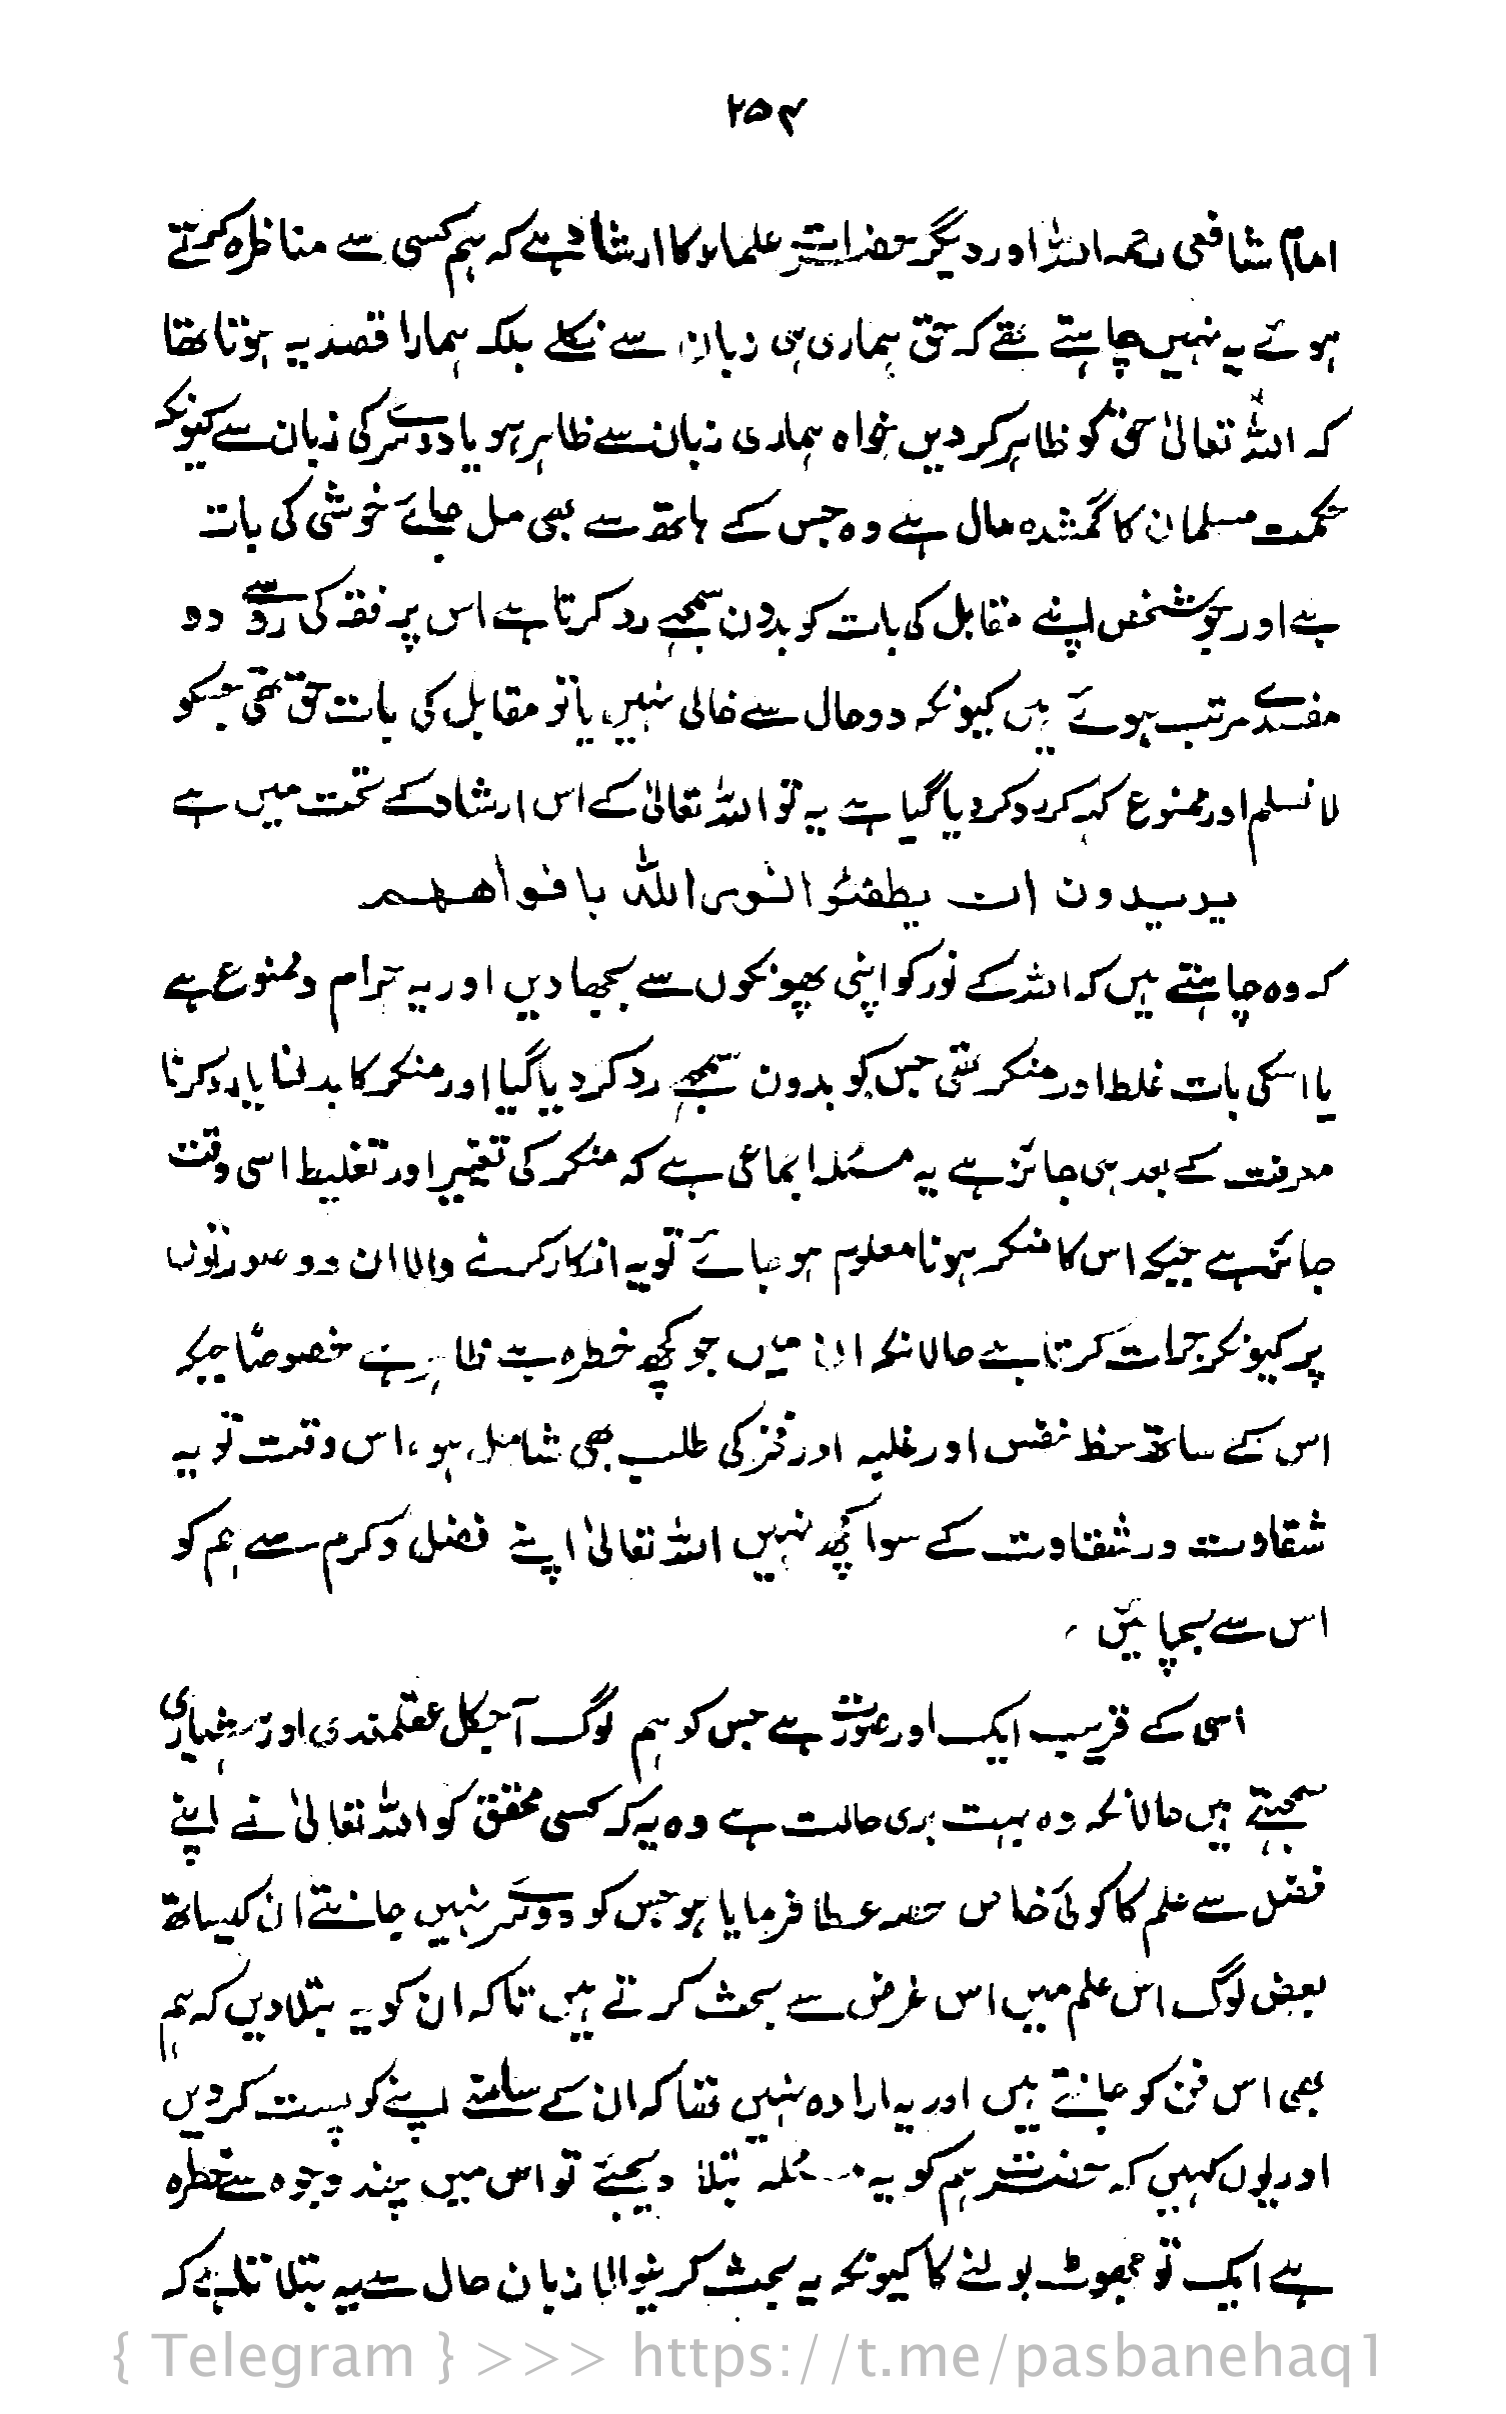 ۲۵۴
امام شافعی رحمہ اللہ اور دیگر حضرات علماء کا ارشاد ہے کہ ہم کسی سے مناظرہ کرتے
ہوئے یہ نہیں چاہتے تھے کہ حق ہماری ہی زبان سے نکلے بلکہ ہمارا قصد یہ ہوتا تھا
کہ اللہ تعالیٰ حق کو ظاہر کر دیں خواہ ہماری زبان سے ظاہر ہو یا دوسرے کی زبان سے کیونکہ
حکمت مسلمان کا گمشدہ مال ہے وہ جس کے ہاتھ سے بھی مل جائے خوشی کی بات
ہے اور جو شخص اپنے مقابل کی بات کو بدون سمجھے رد کرتا ہے اس پر فقہ کی رو سے دو
مفسدے مرتب ہوئے ہیں کیونکہ دو حال سے خالی نہیں یا تو مقابل کی بات حق تھی جسکو
لا نسلم اور ممنوع کہہ کر رد کر دیا گیا ہے یہ تو اللہ تعالیٰ کے اس ارشاد کے تحت میں ہے
یریدون ان یطفئوا نور اللہ بافواھھم
کہ وہ چاہتے ہیں کہ اللہ کے نور کو اپنی پھونکوں سے بجھا دیں اور یہ حرام و ممنوع ہے
یا اسکی بات غلط اور منکر تھی جس کو بدون سمجھے رد کر دیا گیا اور منکر کا بدلنا یا رد کرنا
معرفت کے بعد ہی جائز ہے یہ مسئلہ اجماعی ہے کہ منکر کی تغییر اور تغلیط اسی وقت
جائز ہے جبکہ اس کا منکر ہونا معلوم ہو جائے تو یہ انکار کرنے والا ان دو صورتوں
پر کیونکر جرات کرتا ہے حالانکہ ان میں جو کچھ خطرہ ہے ظاہر ہے خصوصاً جبکہ
اس کے ساتھ حظ نفس اور غلبہ اور فخر کی طلب بھی شامل ہو، اس وقت تو یہ
شقاوت در شقاوت کے سوا کچھ نہیں اللہ تعالیٰ اپنے فضل و کرم سے ہم کو
اس سے بچائیں ۔
اسی کے قریب ایک اور عورت ہے جس کو ہم لوگ آجکل عقلمندی اور ہشیاری
سمجھتے ہیں حالانکہ وہ بہت بری حالت ہے وہ یہ کہ کسی محقق کو اللہ تعالیٰ نے اپنے
فضل سے علم کا کوئی خاص حصہ عطا فرمایا ہو جس کو دوسرے نہیں جانتے ان کیساتھ
بعض لوگ اس علم میں اس غرض سے بحث کرتے ہیں تاکہ ان کو یہ بتلا دیں کہ ہم
بھی اس فن کو جانتے ہیں اور یہ ارادہ نہیں ہوتا کہ ان کے سامنے اپنے کو پست کر دیں
اور یوں کہیں کہ حضرت ہم کو یہ مسئلہ بتلا دیجئے تو اس میں چند وجوہ سے خطرہ
ہے ایک تو جھوٹ بولنے کا کیونکہ یہ بحث کرنیوالا زبان حال سے یہ بتلاتا ہے کہ
{ Telegram } >>> https://t.me/pasbanehaq1